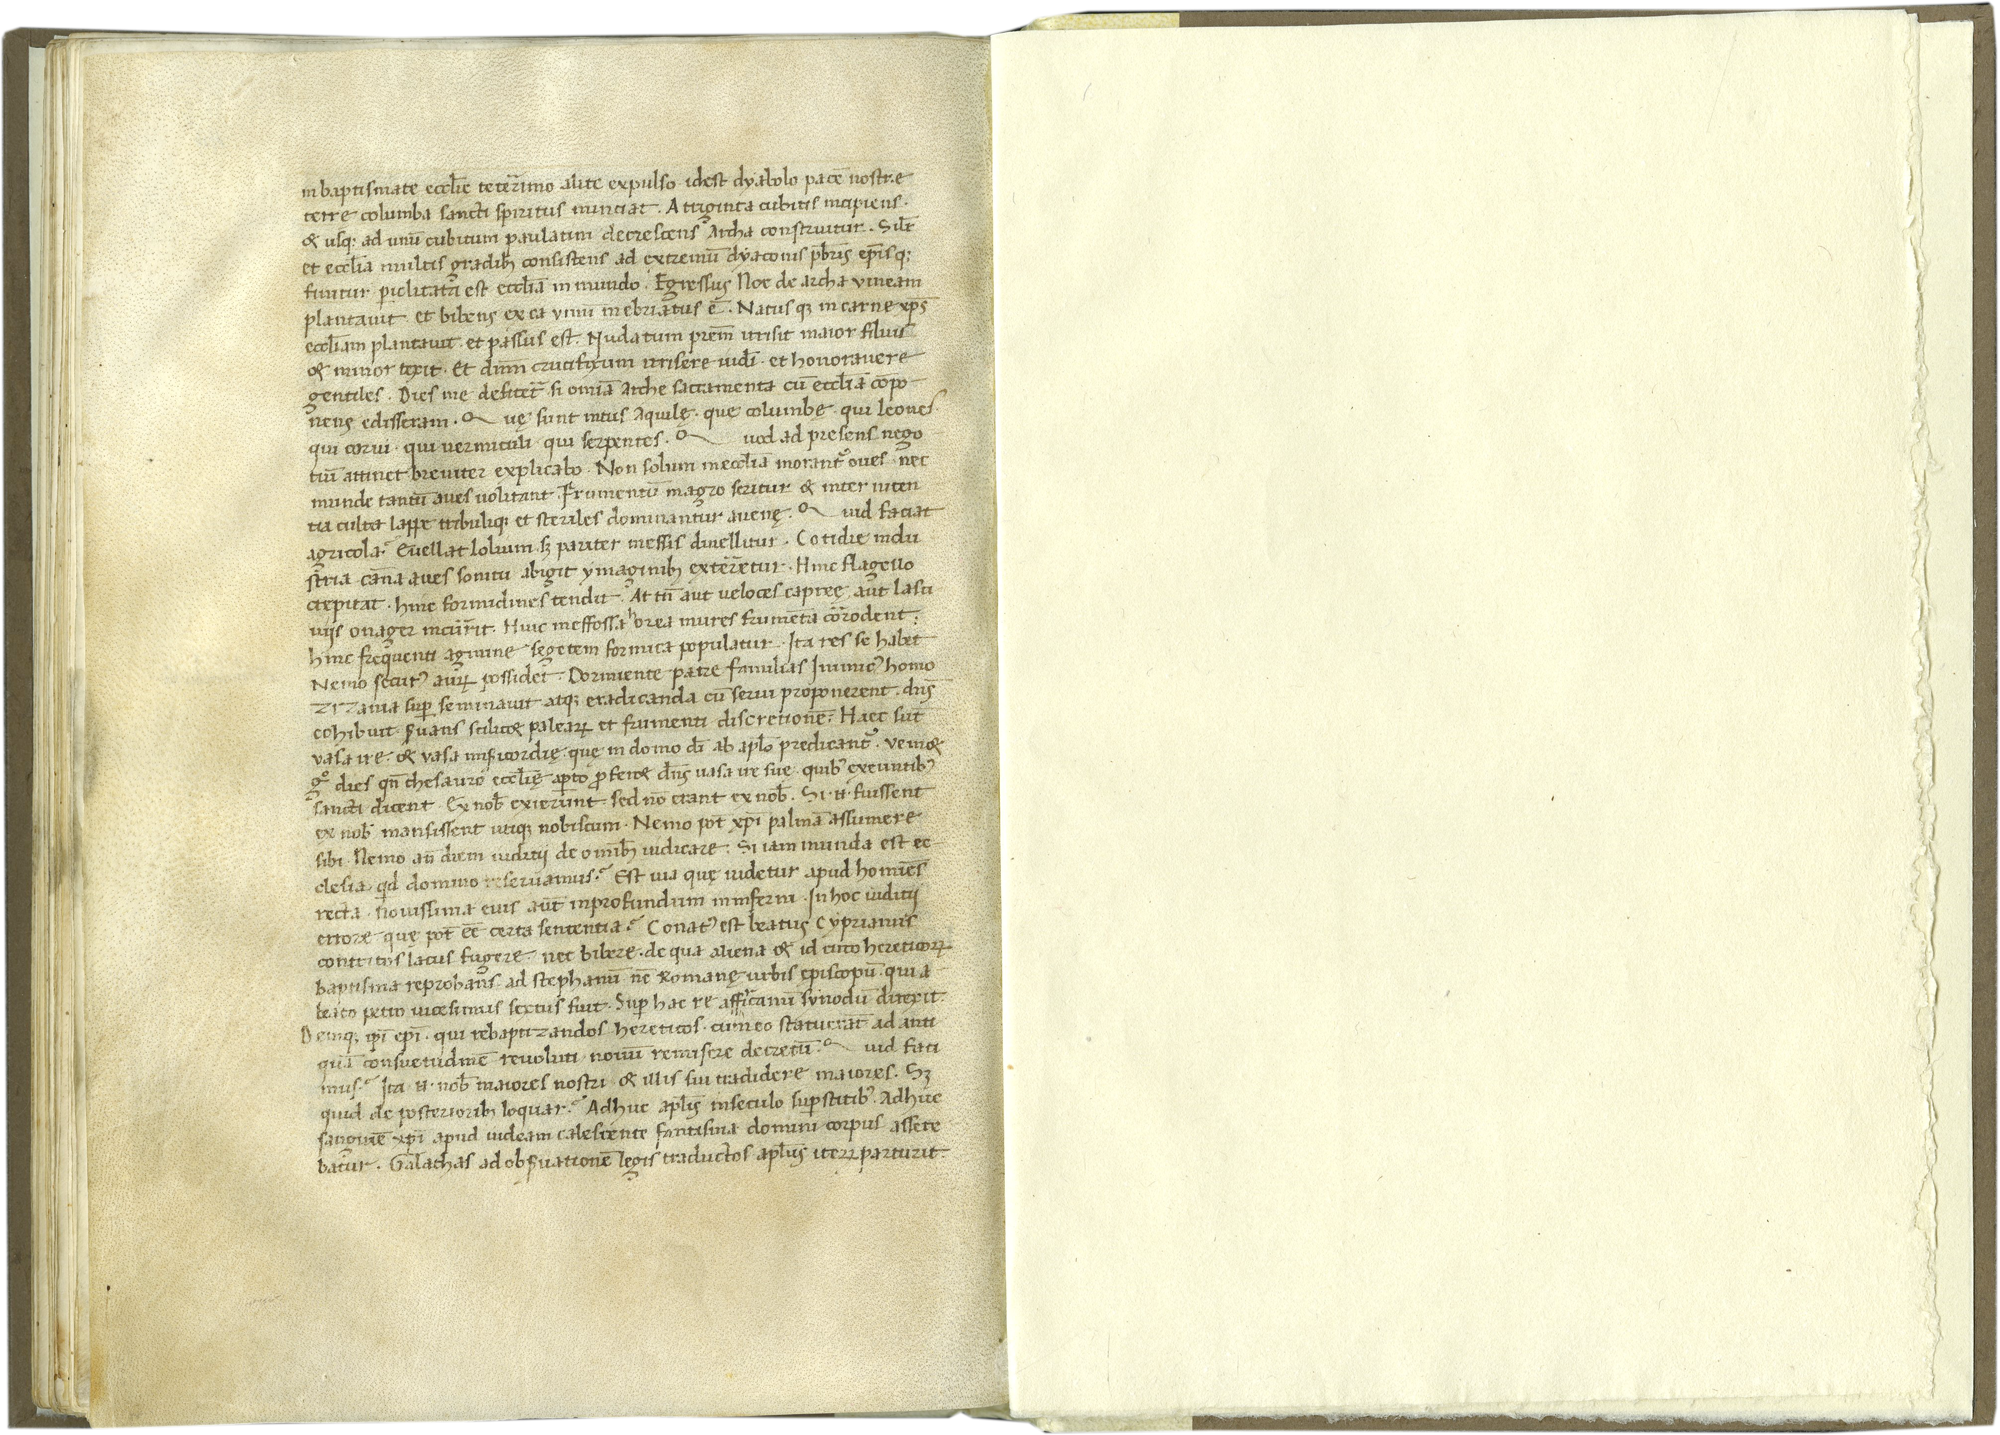 in baptismate eccl̄ie teterrimo alite expulso idest dyabolo pacē nostre
terre columba sancti spiritus nunciat. A triginta cubitis incipiens.
& usq; ad unū cubitum paulatim decrescens archa construitur. Silr̄
et eccl̄ia multis gradib; consistens ad extremū dyaconis pr̄bris ep̄isq;
finitur periclitata est eccl̄ia in mundo. Egressus Noe de archa vineam
plantavit et bibens ex ea vinū inebriatus ē. Natus q; in carne xp̄s
eccl̄iam plantavit et passus est. Nudatum prēm irrisit maior filius
& minor texit. Et dn̄m crucifixum irrisere iudēi et honoravere
gentiles. Dies me deficer& si omīa arche sacramenta cū eccl̄ia cōpo
nens edisseram. Quę sunt intus aquilę. que columbe. qui leones
qui corvi. qui vermiculi qui serpentes. Quod ad presens nego
tiū attinet breviter explicabo. Non solum in eccl̄ia morant᷑ oves. nec
munde tantū aves volitant. Frumentū in agro seritur & inter niten
tia culta lappe tribuliq; et steriles dominantur avenę. Quid faciat
agricola? Evellat lolium. sȝ pariter messis divellitur. Cotidie indu
stria cana aves sonitu abigit ymaginib; exterretur. Hinc flagello
crepitat. hinc formidines tendit. At tn̄ aut veloces capree aut lasci
viis onager incurrit. Hinc in effossa horea mures frumēta corrodent;
hinc frequenti agmine segetem formica populatur. Ita res se habet
Nemo secur᷒ agrū possidet. Dormiente patre familias Inimic᷒ homo
zizania sup̄ seminavit atq; eradicanda cū servi proponerent. dn̄s
cohibuit. s̄uans scilic& paleaꝝ et frumenti discretionē. Haec sūt
vasa ire. & vasa mis̄icordię. que in domo dī ab apl̄o predicant᷑. veni&
gͦ dies qn̄ thesauro eccl̄ię ap̄to ꝓfer& dn̄s vasa ire sue. quib᷒ exeuntib᷒
sancti dicent. Ex nob̄ exierunt. sed nō erant ex nob̄. Si n̄ fuissent
ex nob̄ mansissent utiq; nobiscum. Nemo pōt xp̄i palmā assumere
sibi. Nemo an̄ diem iuditii de omīb; iudicare. Si iam munda est ec
clesia. qd̄ domino reservamus? Est via quę videtur apud homines
recta. novissima eius aūt in profundum inferni. In hoc iuditii
errore quę pōt eē certa sententia? Conat᷒ est beatus Cyprianus
contritos lacus fugere. nec bibere de qua aliena & id circo hereticoꝝ
baptisma reprobans. ad Stephanū nc̄ Romanę urbis episcopū. qui a
beato petro vicesimus sextus fuit. Sup̄ hac re affricanū synodū direxit.
Deniq; ip̄i ep̄i. qui rebaptizandos hereticos. cum eo statuerāt ad anti
quā consuetudinē revoluti novū remisere decretū. Quid faci
mus? Ita n̄ nob̄ maiores nostri & illis sui tradidere maiores. Sȝ
quid de posteriorib; loquar? Adhuc apl̄is in seculo sup̄stitib᷒. Adhuc
sanguinē xp̄i apud iudeam calescente fantasma domini corpus assere
batur. Galathas ad obs̄vationē legis traductos apl̄us iteꝝ parturit.